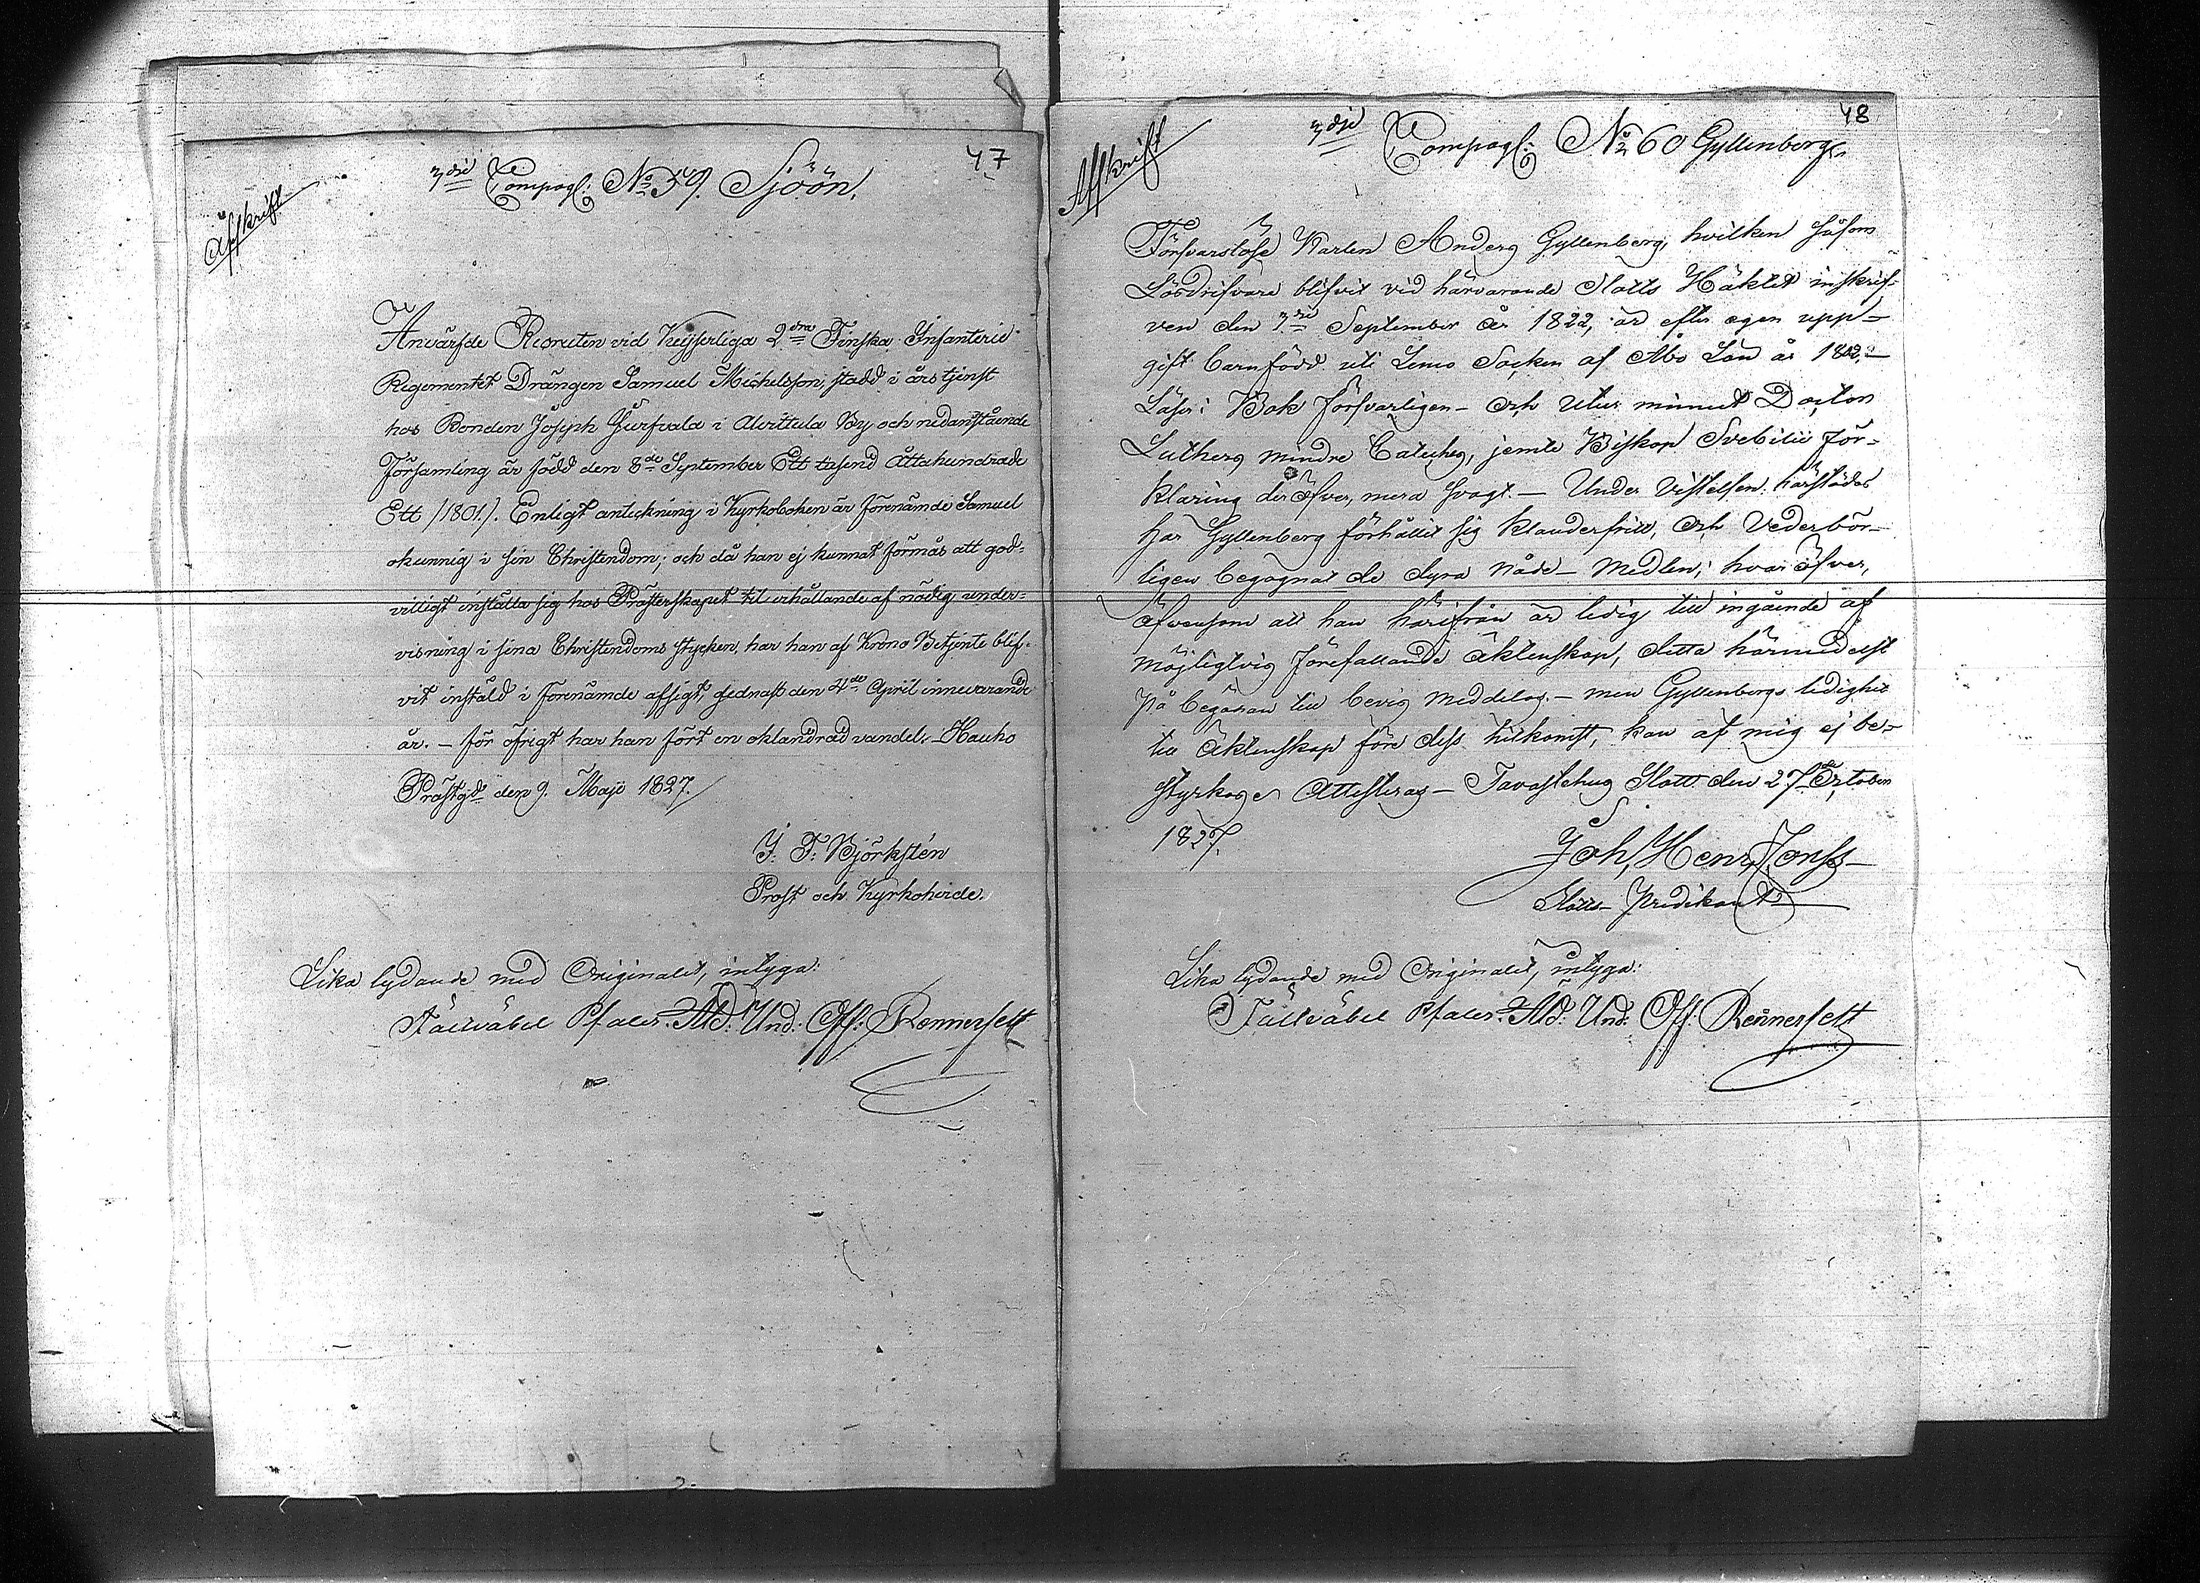 47
Afskrift
3die Compagl: No 59. Sjöön.
Anvärfde Recruten vid Keijserliga 2dra Finska Infanterie
Regementet Drängen Samuel Michelsson, stadd i årstjenst
hos Bonden Joseph i By och nedanstående
Församling är född den 8de September Ett tusend Åttahundrade
Ett /1801/. Enligt anteckning i Kyrkoboken är förenämde Samuel
okunnig i sin Christendom; och då han ej kunnat förmås att god-
villigt inställa sig hos Prästerskapet til erhållande af nödig under-
visning i sina Christendoms stycken, har han af Krono Betjente blif-
vit instäld i förenämde afsigt, sednast den April innevarande
år. – för öfrigt har han fört en oklandrad vandel. – Hauho
Prästgd den 9. Maji 1827.
J: F: Björkstén
Prost och Kyrkoherde.
Lika lydande med Originalet, intyga:
Fältväbel Pfaler. Und: Off: Rennerfelt
48
Afskrift
3dje Compagl: No 60 Gyllenberg.
Försvarslöse Karlen Anders Gyllenberg, hvilken såsom
Lösdrifvare blifvit vid härvarande Slotts Häkte inskrif-
ven den September år 1822, är efter egen upp-
gift barnfödd uti Lemo Socken af Åbo Län år 1802. –
Läser i Bok försvarligen – och utur minnet Doctor
Luthers mindre Cateches, jemte Biskop Svebilii för-
klaring deröfver, mera svagt. – Under vistelsen härstädes
har Gyllenberg förhållit sig klanderfritt, och vederbör-
ligen begagnat de dyra Nåde-Medlen; hvaröfver,
äfvensom att han härifrån är ledig till ingående af
möjligtvis förefallande äktenskap, detta härmedelst
på begäran till bevis meddelas. – men Gyllenbergs ledighet
till Äktenskap före dess hitkomst, kan af mig ej be-
styrkas Attesteras – Tavastehus Slott den 27de October
1827.
Joh, Henr, Jonss
Slotts-Predikant
Lika lydande med Originalet, intyga:
Fältväbel Pfaler. Und: Off: Rennerfelt